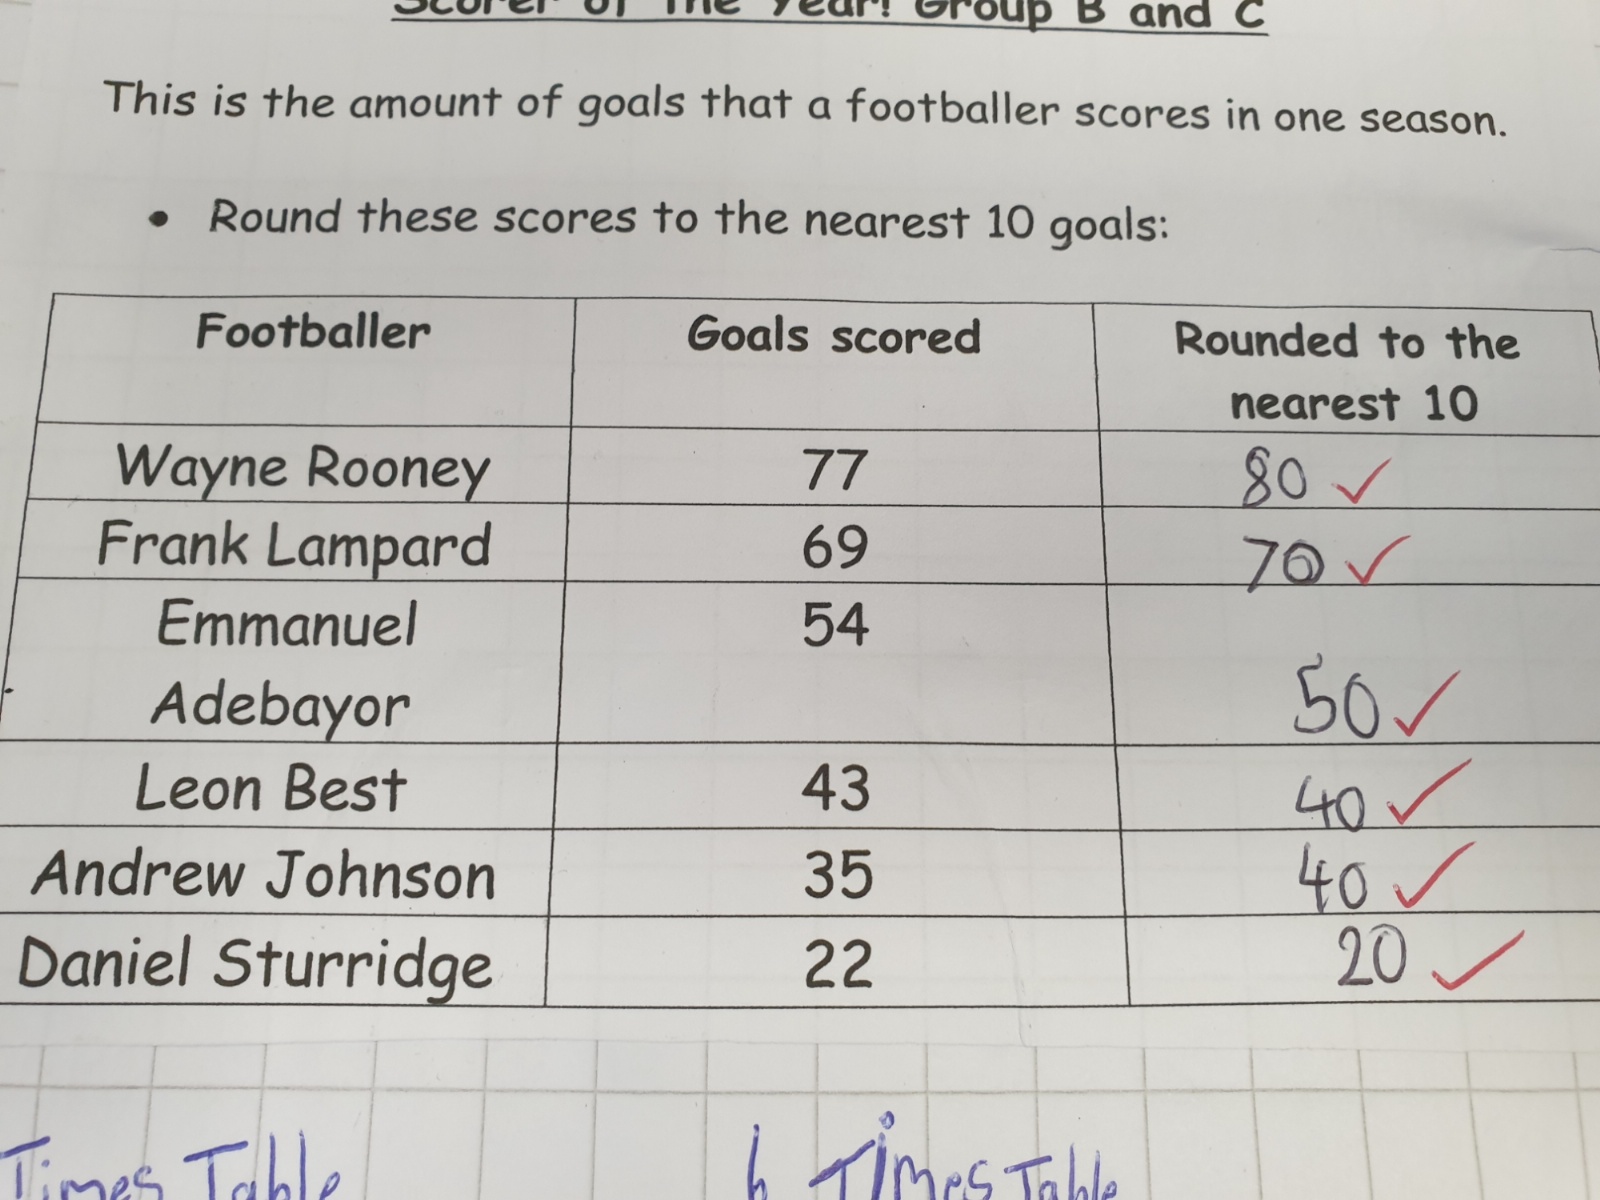 Scorer of The Year! Group B and C
This is the amount of goals that a footballer scores in one season.
• Round these scores to the nearest 10 goals:
Footballer Goals scored Rounded to the
nearest 10
Wayne Rooney 77 80 ✓
Frank Lampard 69 70 ✓
Emmanuel 54
Adebayor 50 ✓
Leon Best 43 40 ✓
Andrew Johnson 35 40 ✓
Daniel Sturridge 22 20 ✓
Times Table 6 Times Table